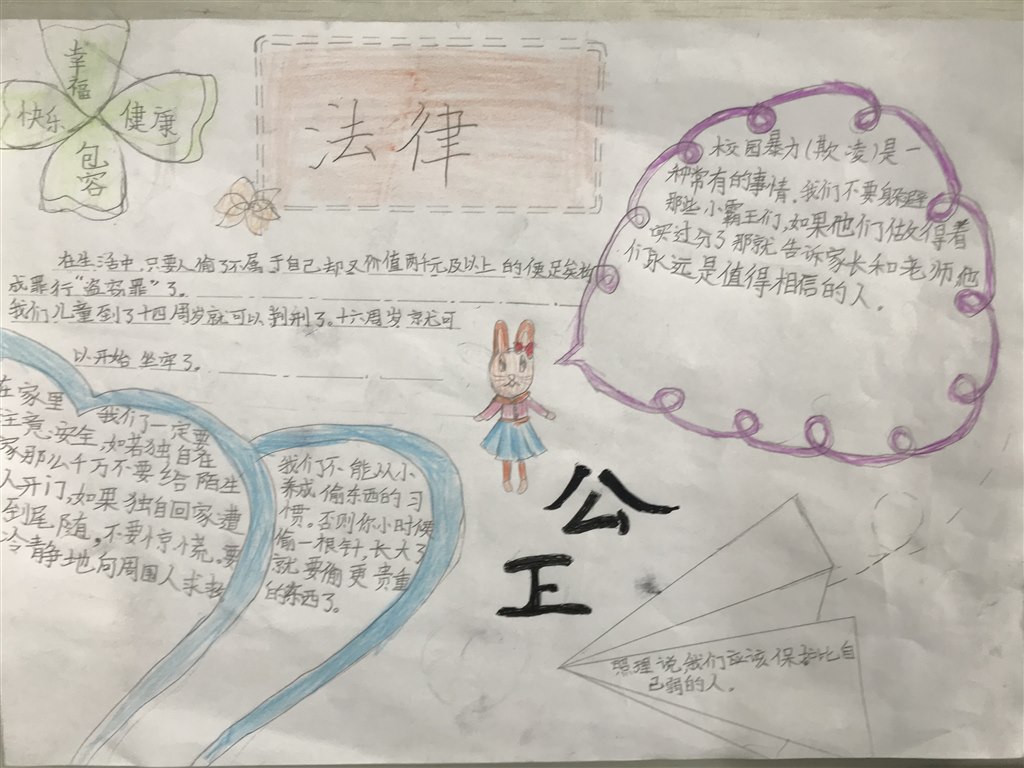 幸福
快乐
健康
包容
法律
校园暴力(欺凌)是一
种常有的事情,我们不要躲避
那些小霸王们,如果他们做得着
哭过分了那就告诉家长和老师他
们永远是值得相信的人。
在生活中,只要人偷了不属于自己却又价值两千元及以上的便足矣构
成罪行“盗窃罪”了。
我们儿童到了十四周岁就可以判刑了。十六周岁就可
以开始坐牢了。
在家里,我们一定要
注意安全,如若独自在
家那么千万不要给陌生
人开门,如果独自回家遭
到尾随,不要惊慌。要
冷静地向周围人求救
我们不能从小
养成偷东西的习
惯。否则你小时候
偷一根针,长大了
就要偷更贵重
的东西了。
公
正
照理说我们应该保护比自
己弱的人。